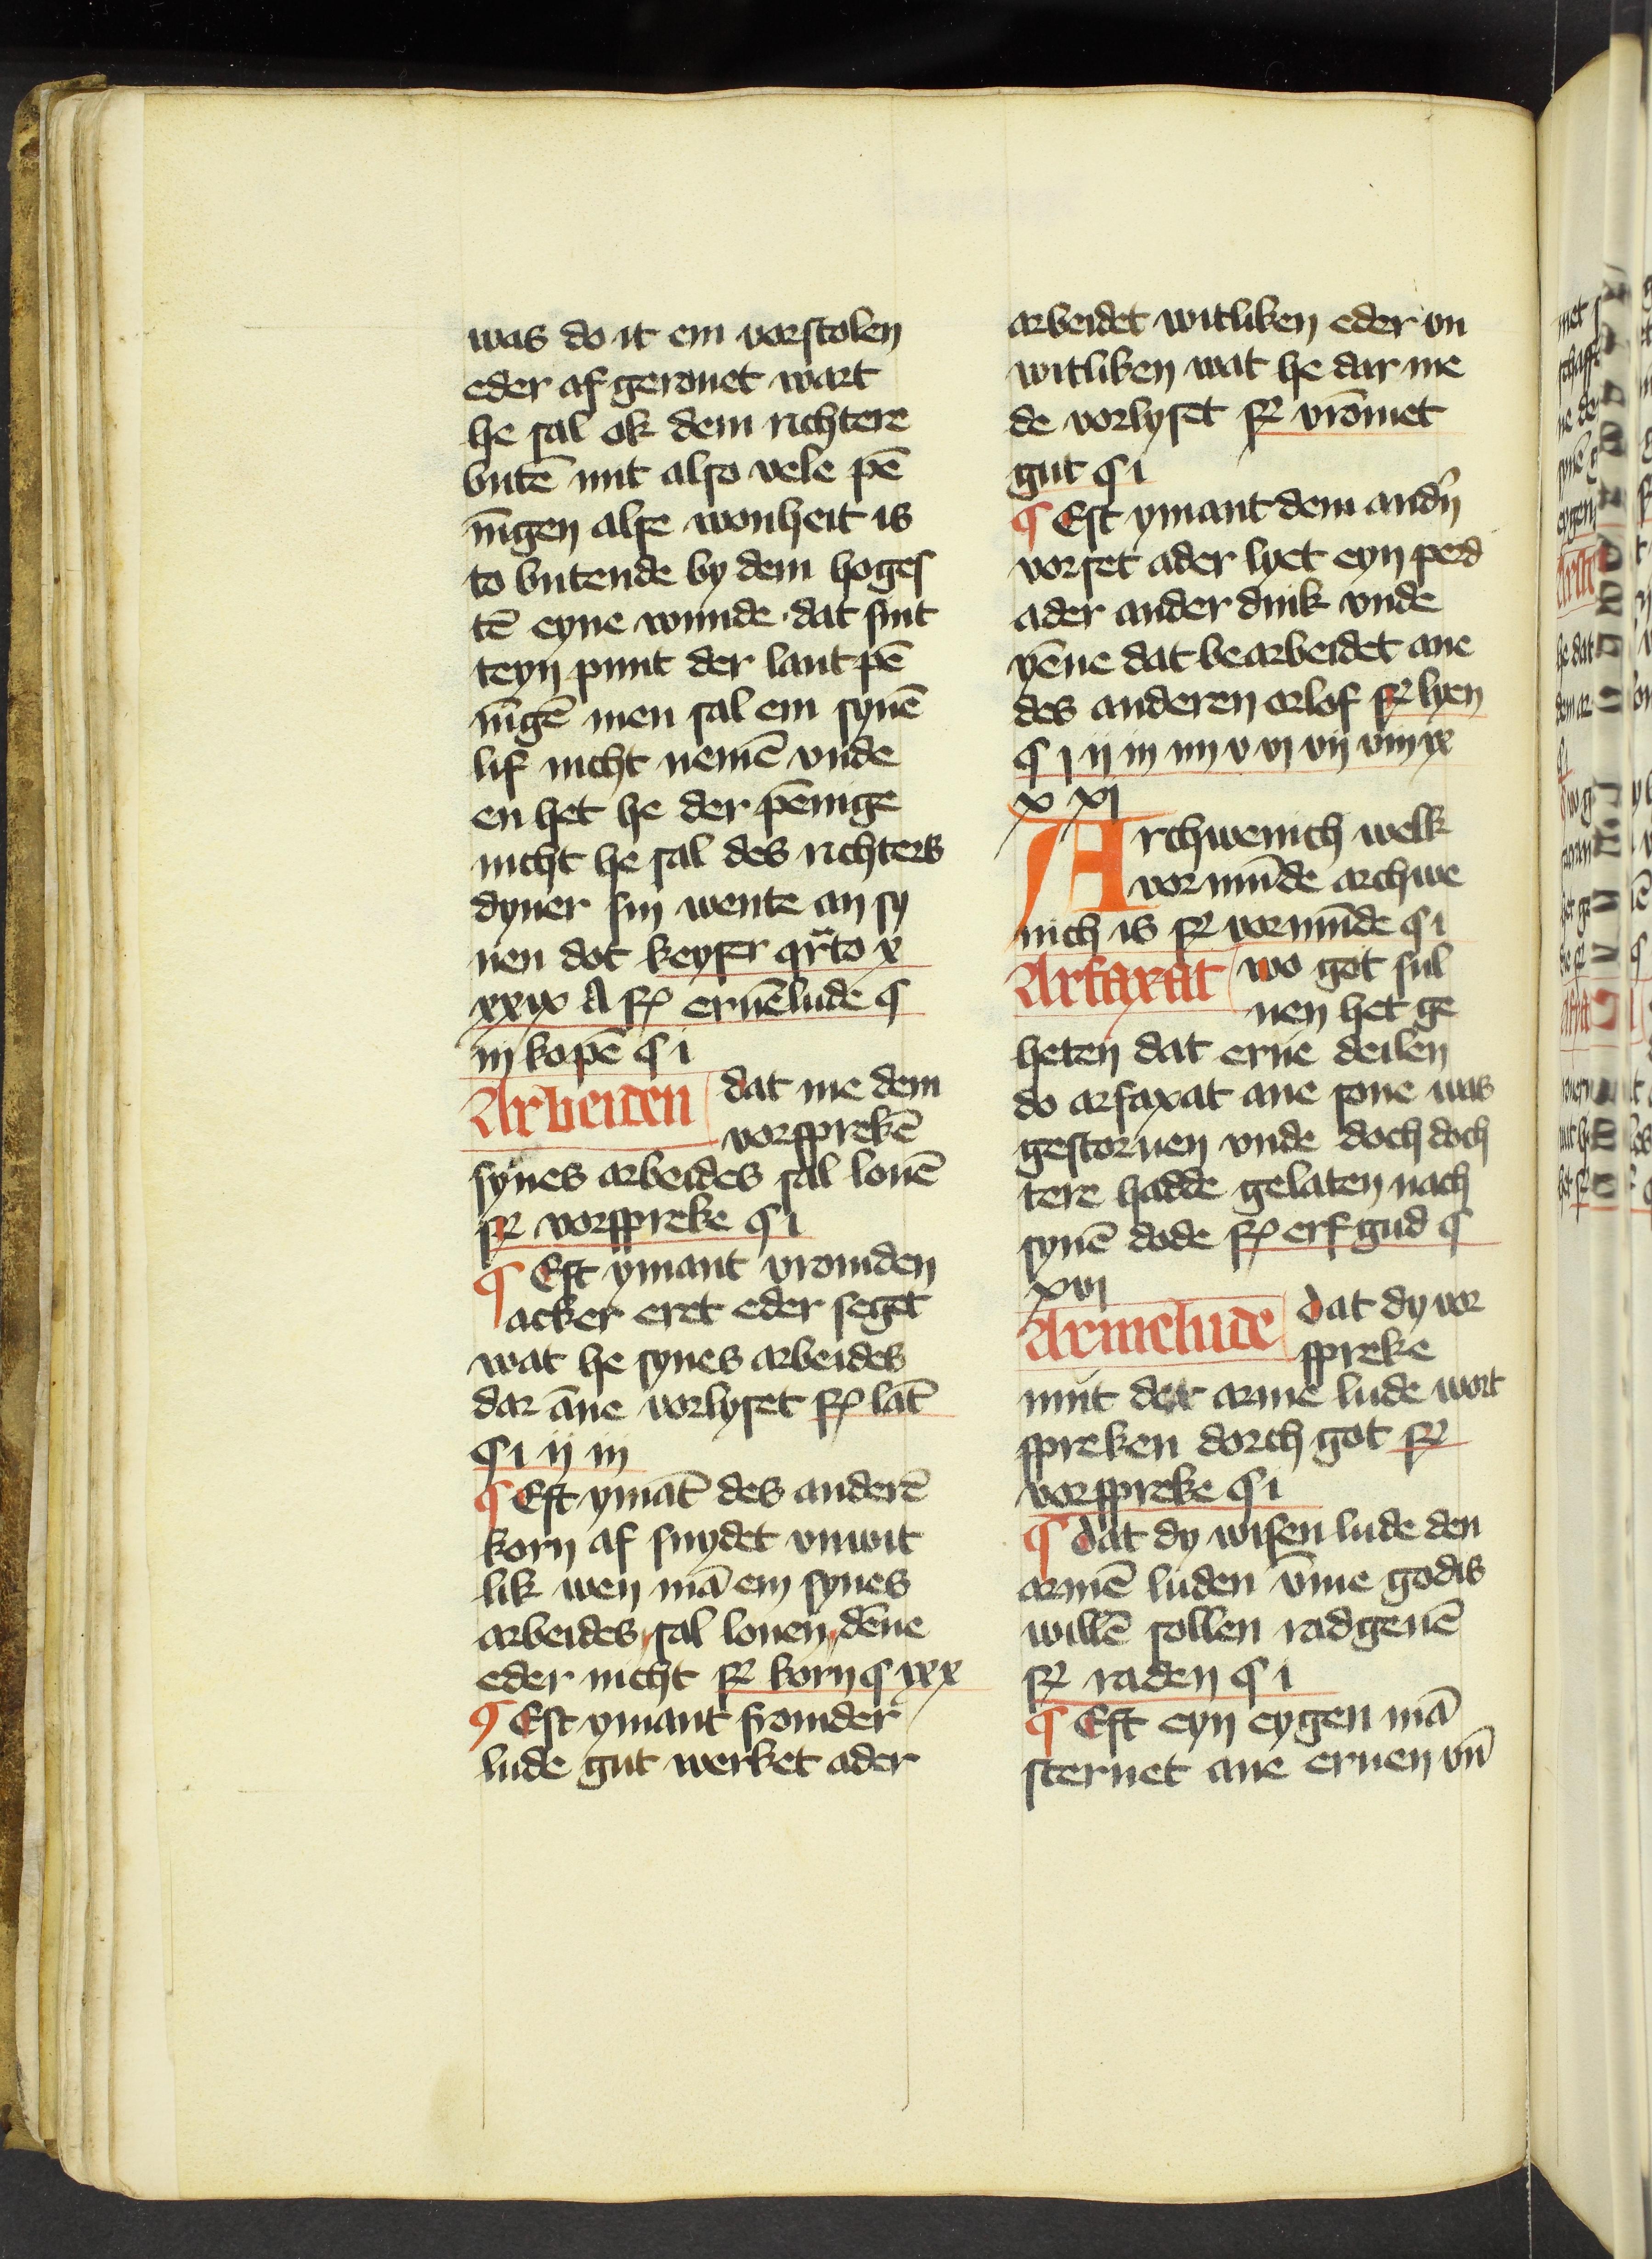 was do it em vorstolen
eder af gerouet wart
he sal ok dem richtere
butē mit also vele pē
nīgen alse wonheit is
to butende by dem hoges
tē eyne wunde · dat sint
teyn punt der lantpē
nīgē men sal em synē
lif nicht nemē vnde
en het he der pēnige
nicht he sal des richters
dyner sin wente an sy
nen dot keyser qrto x
xxix A sꝝ eruēlude ¶
iij kopē ¶ i
Arbeiden dat me dem
vorsprekē
synes arbeides sal lonē
sꝝ vorspreke ¶ i
¶ Est ymant vromden
acker eret eder seget
wat he synes arbeides
dar āne vorlyset sꝝ lāt
¶ i ij iij
¶ Est ymāt des anderē
korn af snydet vnwit
lik wen mā em synes
arbeides sal lonen dēne
eder nicht sꝝ korn ¶ ixx
¶ Est ymant fromder
lude gut werket ader
arbeidet witliken eder vn
witliken wat he dar me
de vorlyset sꝝ vrōmet
gut ¶ i
¶ Est ymant dem andn̄
vorset ader lyet eyn perd
ader ander dink vnde
yēne dat bearbeidet ane
des anderen orlof sꝝ lyen
¶ i ij iij iiij v vi vij viij ix
x xi
Archwenich welk
vormūde archwe
nich is sꝝ vormūde ¶ i
Arfaxat wo got sul
uen het ge
heten dat erue deilen
do arfaxat ane sone was
gestoruen vnde doch doch
tere hadde gelaten nach
synē dode sꝝ erfgud ¶
xvi
Armelude dat dy vor
spreke
mit der arme lude wort
spreken dorch got sꝝ
vorspreke ¶ i
¶ dat dy wisen lude den
armē luden vm̄e godis
willē sollen radgeuē
sꝝ raden ¶ i
¶ Est eyn eygen mā
steruet ane eruen vn̄